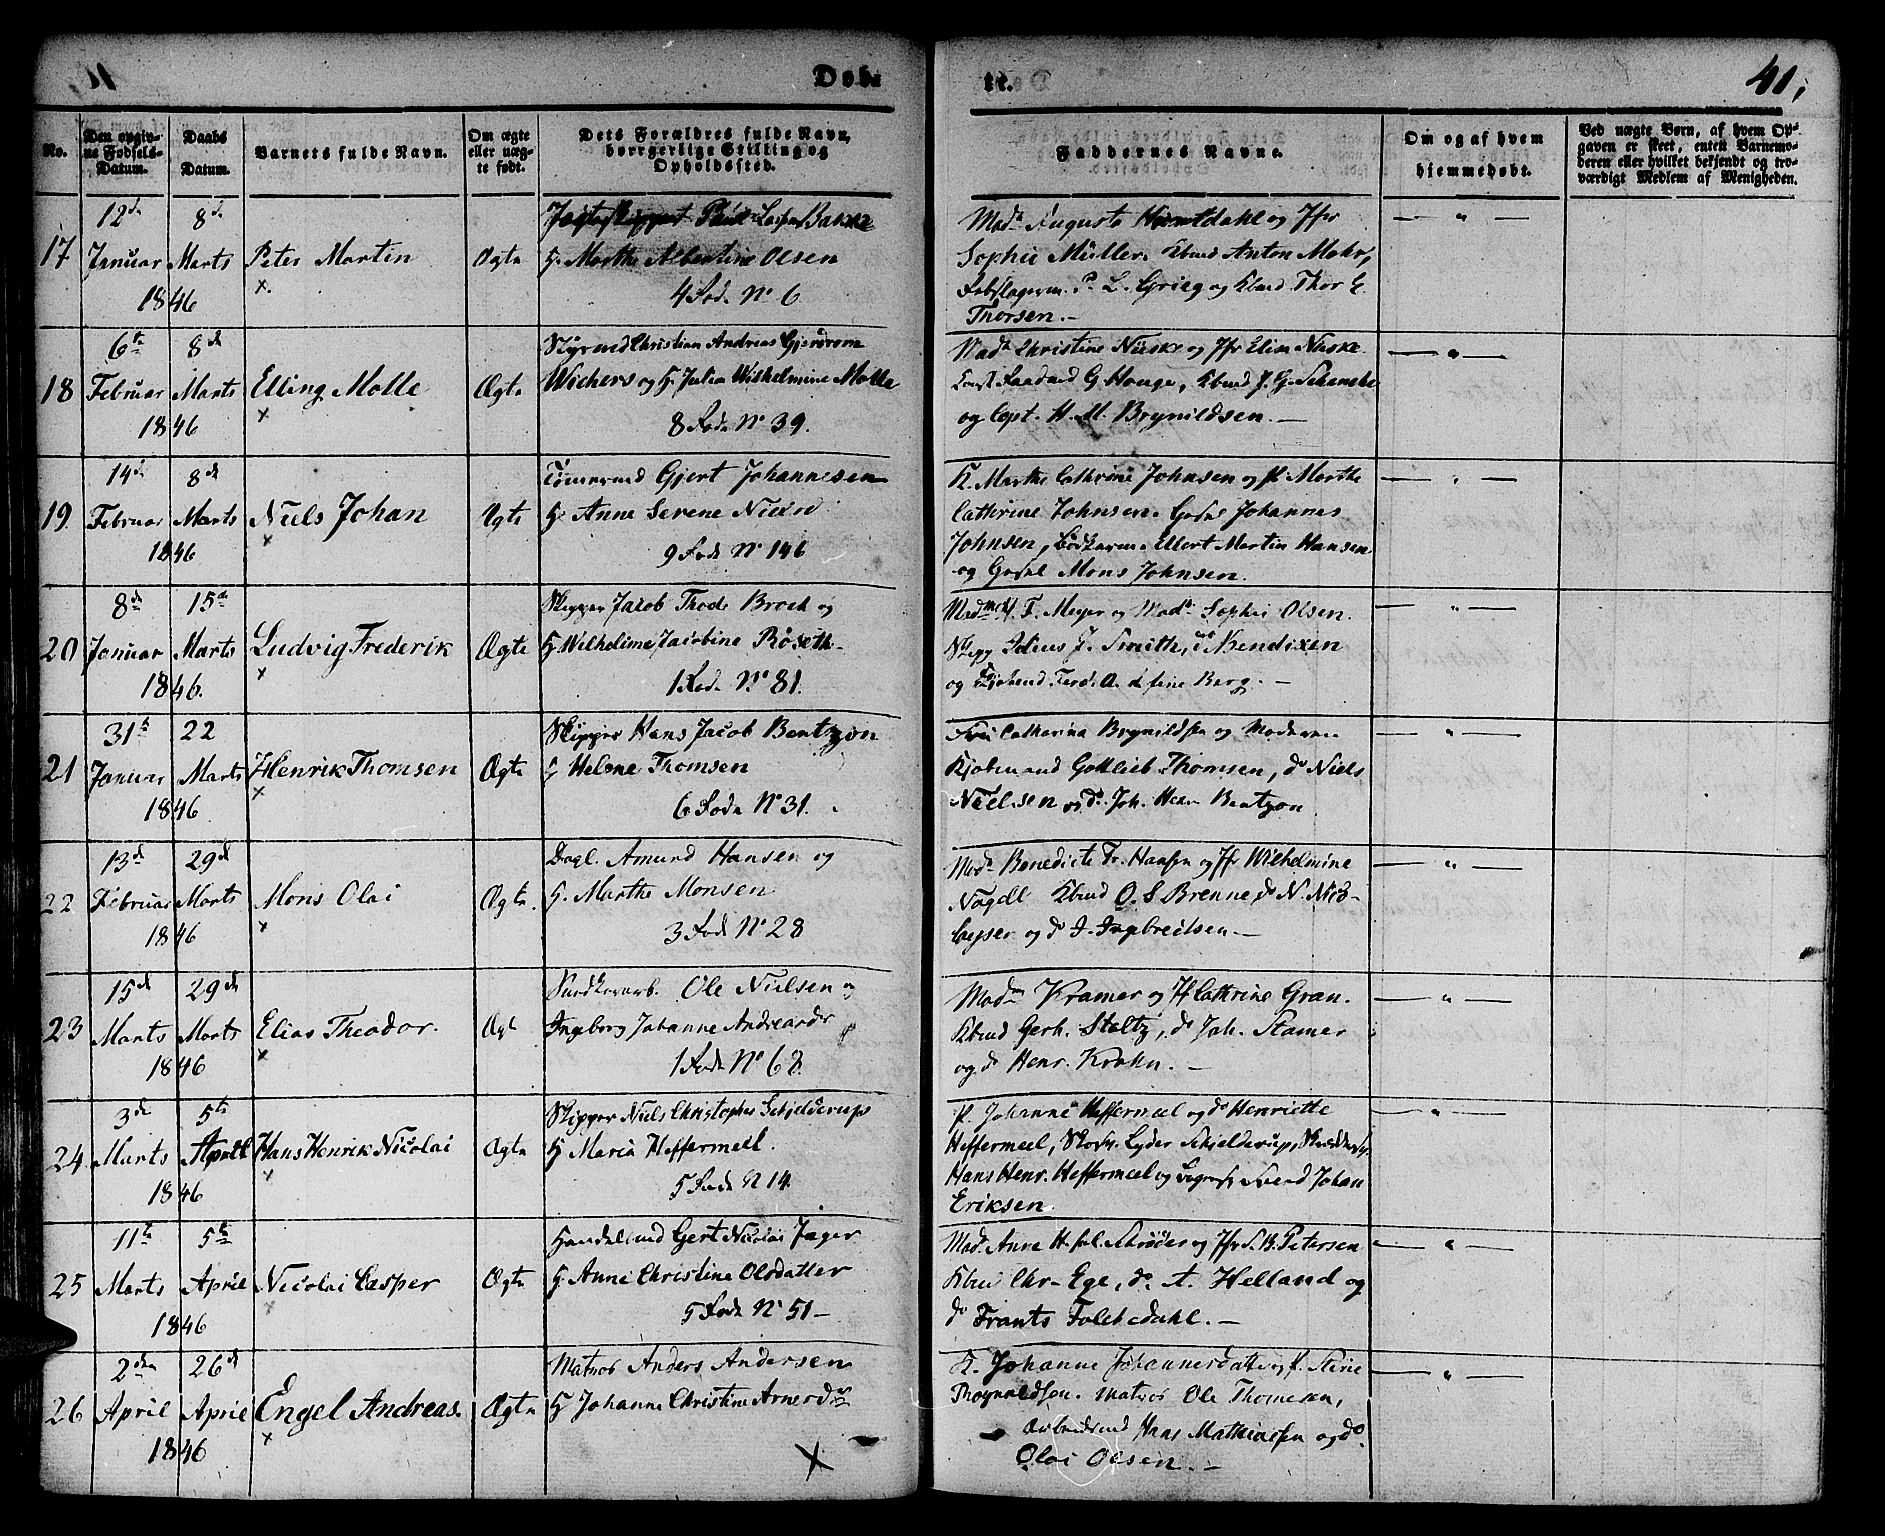 Døb
te.
41.
No.
Den opgiv-
ne Fødsels-
Datum.
Daabs
Datum.
Barnets fulde Navn.
Om ægte
eller uæg-
te født.
Dets Forældres fulde Navn,
borgerlige Stilling og
Opholdssted.
Faddernes Navne.
Om og af hvem
hjemmedøbt.
Ved uægte Børn, af hvem Op-
gaven er skeet, enten Barnemo-
deren eller hvilket bekjendt og tro-
værdigt Medlem af Menigheden.
17
12te
Januar
8de
Marts
1846
Peter Martin
Ægte
Bakke
H. Marthe Albertine Olsen
4 Rode No 6
Madm Augusta og Jfr
Sophie Müller. Kbmd Anton Mohr,
P. L. Grieg og Kbmd Thor E.
Thorsen.
18
6te
Februar
8de
Marts
1846
Elling Molle
Ægte
Styrmd Christian Andreas
Wichers og H. Julia Wilhelmine Molle
8 Rode No 39.
Madm Christine Nüske og Jfr Elise Nüske.
G. Houge, Kbmd J. G.
og Capt. H. M. Brynildsen.
19
14de
Februar
8de
Marts
1846
Niels Johan
Ægte
Tømmermd Gjert Johannesen
H. Anne Serene
9 Rode No 146
K. Marthe Cathrine Johnsen og P. Marthe
Cathrine Johnsen. Johannes
Johnsen, Ellert Martin Hansen
og Mons Johnsen.
20
8de
Januar
15de
Marts
1846.
Ludvig Frederik
Ægte
Skipper Jacob Thode Broch og
H. Wilhelmine Jacobine Röseth
1 Rode No 81.
Meyer og Madm Sophie Olsen.
Skipp Smith, do Bendixen
og Kjøbmd Ferd. Berg.
21
31te
Januar
22
Marts
1846
Henrik Thomsen
Ægte
Skipper Hans Jacob Bentzon
H. Helene Thomsen
6 Rode No 31.
Catharina Brynildsen og Moderen
Kjøbmand Gottlieb Thomsen, do Niels
Nielsen og do Joh. Bentzon
22
13de
Februar
29de
Marts
1846
Mons Olai
Ægte.
Dagl. Amund Hansen og
H. Marthe Monsen
3 Rode No 28
Madm Benedicte Fr. Hansen og Jfr Wilhelmine
Nagell Kbmd O. S. Brenne, do N. Nico-
laysen og do J. Ingbreitsen.
23
15de
Marts
29de
Marts
1846
Elias Theodor.
Ægt
Ole Nielsen og
Ingeborg Johanne Andreasdr
1 Rode No 68.
Madm Kramer og H Cathrine Gran.
Kbmd Gerh. Stoltz, do Joh. Stamer
og do Henr. Krohn.
24
3de
Marts
5te
April
1846
Hans Henrik Nicolai
Ægte
Skipper Niels Christopher Schjelderups
H Maria Heffermeel.
5 Rode N 14.
P. Johanne Heffermeel og do Henriette
Heffermeel, Lyder Schjelderup,
Hans Henr. Heffermeel og Svend Johan
Eriksen.
25
11te
Marts
5te
April
1846
Nicolai Casper
Ægte
Handelsmd Gert Nicolai Jæger
H. Anne Christine Olsdatter
5 Rode No 51
Mad. Anne H. Schrøder og Jfr S. B. Petersen
Kbm Chr. Ege, do A. Helland og
do Frants Falchedahl.
26
2den
April
26de
April
1846
Engel Andreas.
Ægte
Matros Anders Andersen
H Johanne Christine Arnesdr
X
K. Johanne Johannesdatter og P. Stine
Thoynoldsen. Matros Ole Thomesen,
Arbeidsmd Hans Mathiassen og do
Olai Olsen.